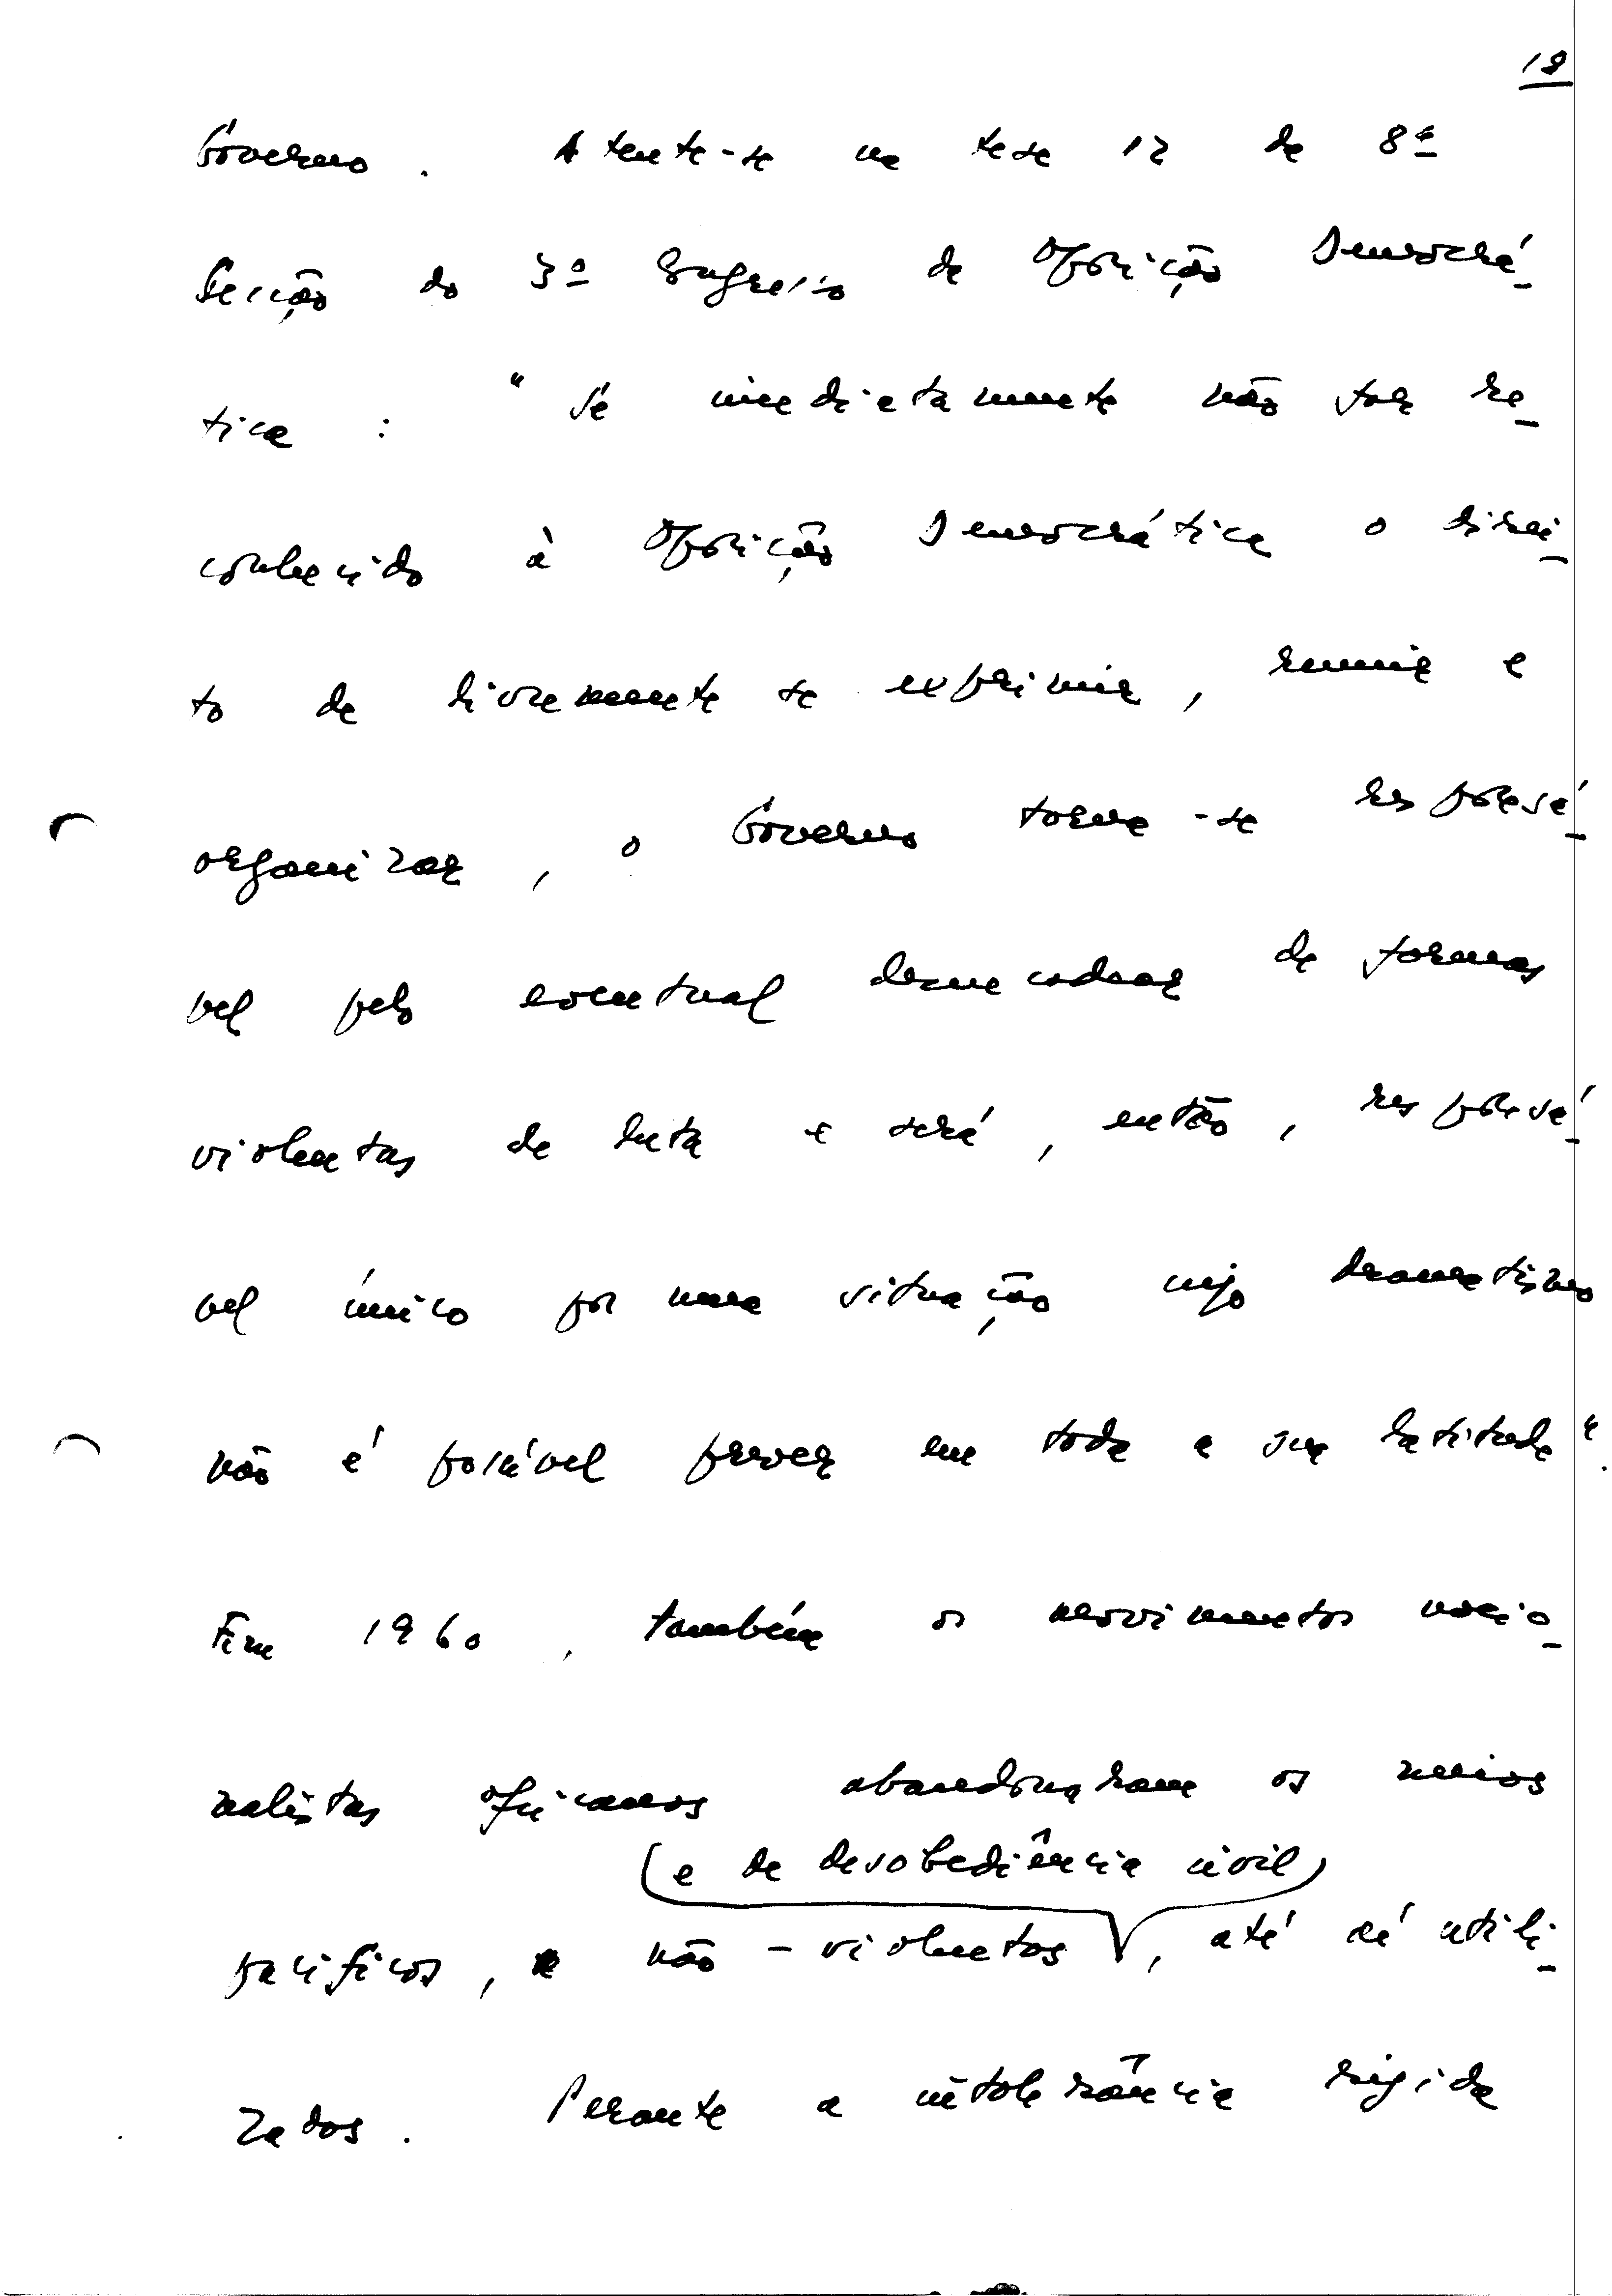 18
Governo. Atente-se na tese 12 da 8ª
Secção do 3º Congresso da Oposição Democrá-
tica : "Se imediatamente não for re-
conhecido à Oposição Democrática o direi-
to de livremente se exprimir, reunir e
organizar, o Governo torna-se responsá-
vel pelo eventual desencadear de formas
violentas de luta e será, então, responsá-
vel único por uma situação cujo dramatismo
não é possível prever em toda a sua latitude".
Em 1960, também os movimentos nacio-
nalistas africanos abandonaram os meios
(e de desobediência civil)
pacíficos, não-violentos, até aí utili-
zados. Perante a intolerância rígida